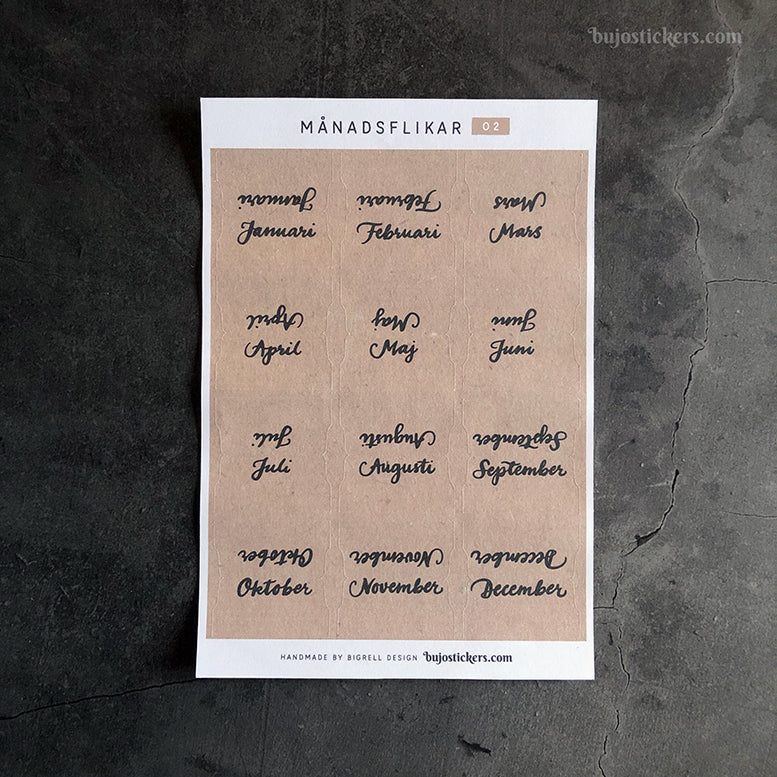 bujostickers.com
MÅNADSFLIKAR 02
Januari Februari Mars
Januari Februari Mars
April Maj Juni
April Maj Juni
Juli Augusti September
Juli Augusti September
Oktober November December
Oktober November December
HANDMADE BY BIGRELL DESIGN bujostickers.com